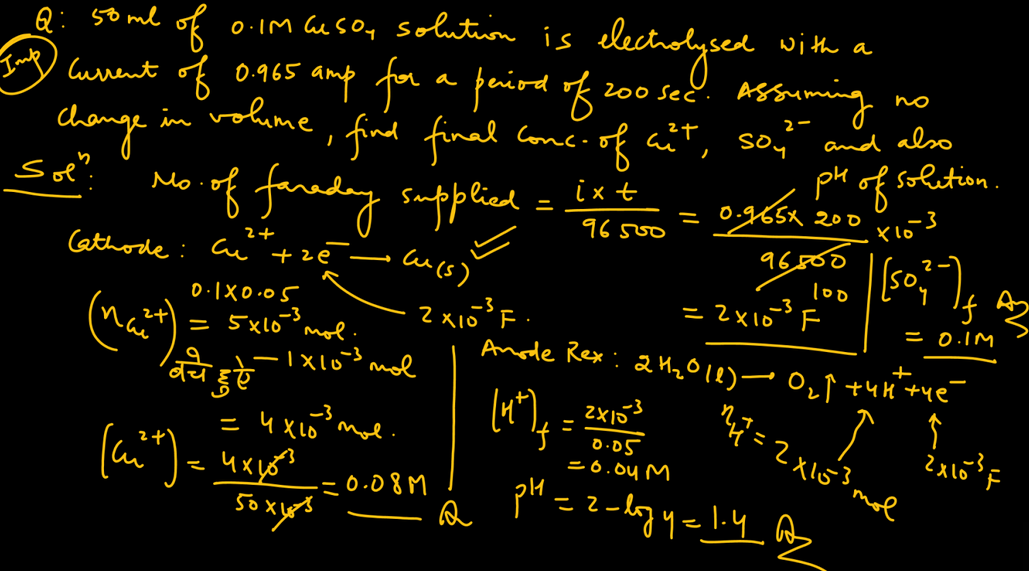 Q: 50 ml of 0.1M CuSO4 solution is electrolysed with a
Imp
current of 0.965 amp for a period of 200 sec. Assuming no
change in volume, find final conc. of Cu2+, SO4 2- and also
pH of solution.
Soln:
No. of faraday supplied = i × t / 96500 = 0.965 × 200 / 96500 × 10-3
100
= 2×10-3 F
Cathode: Cu2+ + 2e- → Cu(s)
2×10-3 F.
0.1×0.05
(nCu2+) = 5×10-3 mol.
- 1×10-3 mol
= 4×10-3 mol.
[Cu2+] = 4×10-3 / 50×10-3 = 0.08M
[SO4 2-]f
= 0.1M
Anode Rex: 2H2O(l) → O2↑ + 4H+ + 4e-
nH+ = 2×10-3 mol
2×10-3 F
[H+]f = 2×10-3 / 0.05
= 0.04M
pH = 2 - log 4 = 1.4